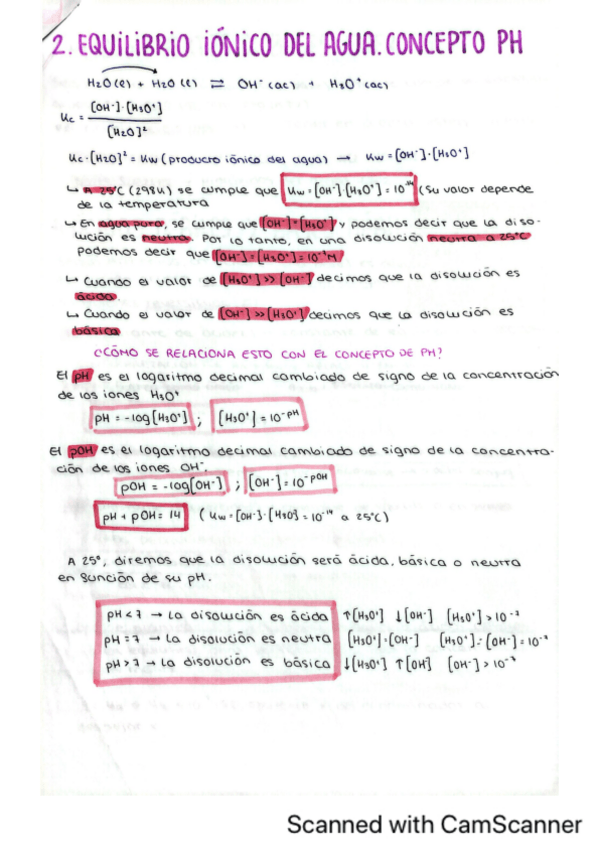 2. EQUILIBRIO IÓNICO DEL AGUA. CONCEPTO PH
H2O (l) + H2O (l) ⇌ OH⁻ (ac) + H3O⁺ (ac)
Kc = [OH⁻]·[H3O⁺] / [H2O]²
Kc·[H2O]² = Kw (producto iónico del agua) → Kw = [OH⁻]·[H3O⁺]
↳ A 25ºC (298K) se cumple que Kw = [OH⁻]·[H3O⁺] = 10⁻¹⁴ (Su valor depende
de la temperatura
↳ En agua pura, se cumple que [OH⁻] = [H3O⁺] y podemos decir que la diso-
lución es neutra. Por lo tanto, en una disolución neutra a 25ºC
podemos decir que [OH⁻] = [H3O⁺] = 10⁻⁷M
↳ Cuando el valor de [H3O⁺] >> [OH⁻] decimos que la disolución es
ácida.
↳ Cuando el valor de [OH⁻] >> [H3O⁺] decimos que la disolución es
básica
¿CÓMO SE RELACIONA ESTO CON EL CONCEPTO DE PH?
El pH es el logaritmo decimal cambiado de signo de la concentración
de los iones H3O⁺
pH = -log[H3O⁺] ; [H3O⁺] = 10⁻ᵖᴴ
El pOH es el logaritmo decimal cambiado de signo de la concentra-
ción de los iones OH⁻.
pOH = -log[OH⁻] ; [OH⁻] = 10⁻ᵖᴼᴴ
pH + pOH = 14 (Kw = [OH⁻]·[H3O] = 10⁻¹⁴ a 25ºC)
A 25º, diremos que la disolución será ácida, básica o neutra
en función de su pH.
pH < 7 → La disolución es ácida ↑[H3O⁺] ↓[OH⁻] [H3O⁺] > 10⁻⁷
pH = 7 → La disolución es neutra [H3O⁺]=[OH⁻] [H3O⁺]=[OH⁻] = 10⁻⁷
pH > 7 → La disolución es básica ↓[H3O⁺] ↑[OH⁻] [OH⁻] > 10⁻⁷
Scanned with CamScanner